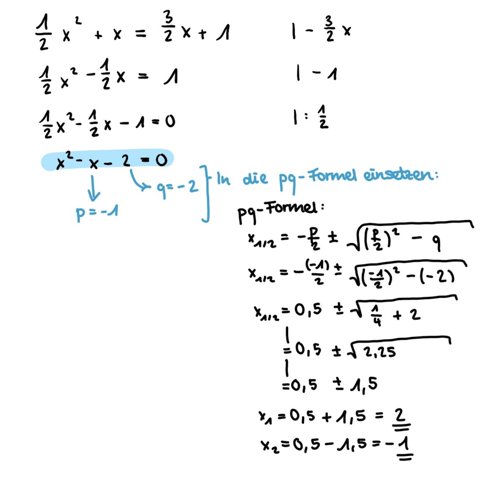 1/2 x² + x = 3/2 x + 1 | - 3/2 x
1/2 x² - 1/2 x = 1 | - 1
1/2 x² - 1/2 x - 1 = 0 | : 1/2
x² - x - 2 = 0
p = -1
q = -2
In die pq-Formel einsetzen:
pq-Formel:
x₁/₂ = - p/2 ± √((p/2)² - q)
x₁/₂ = - (-1)/2 ± √((-1/2)² - (-2))
x₁/₂ = 0,5 ± √(1/4 + 2)
= 0,5 ± √2,25
= 0,5 ± 1,5
x₁ = 0,5 + 1,5 = 2
x₂ = 0,5 - 1,5 = -1